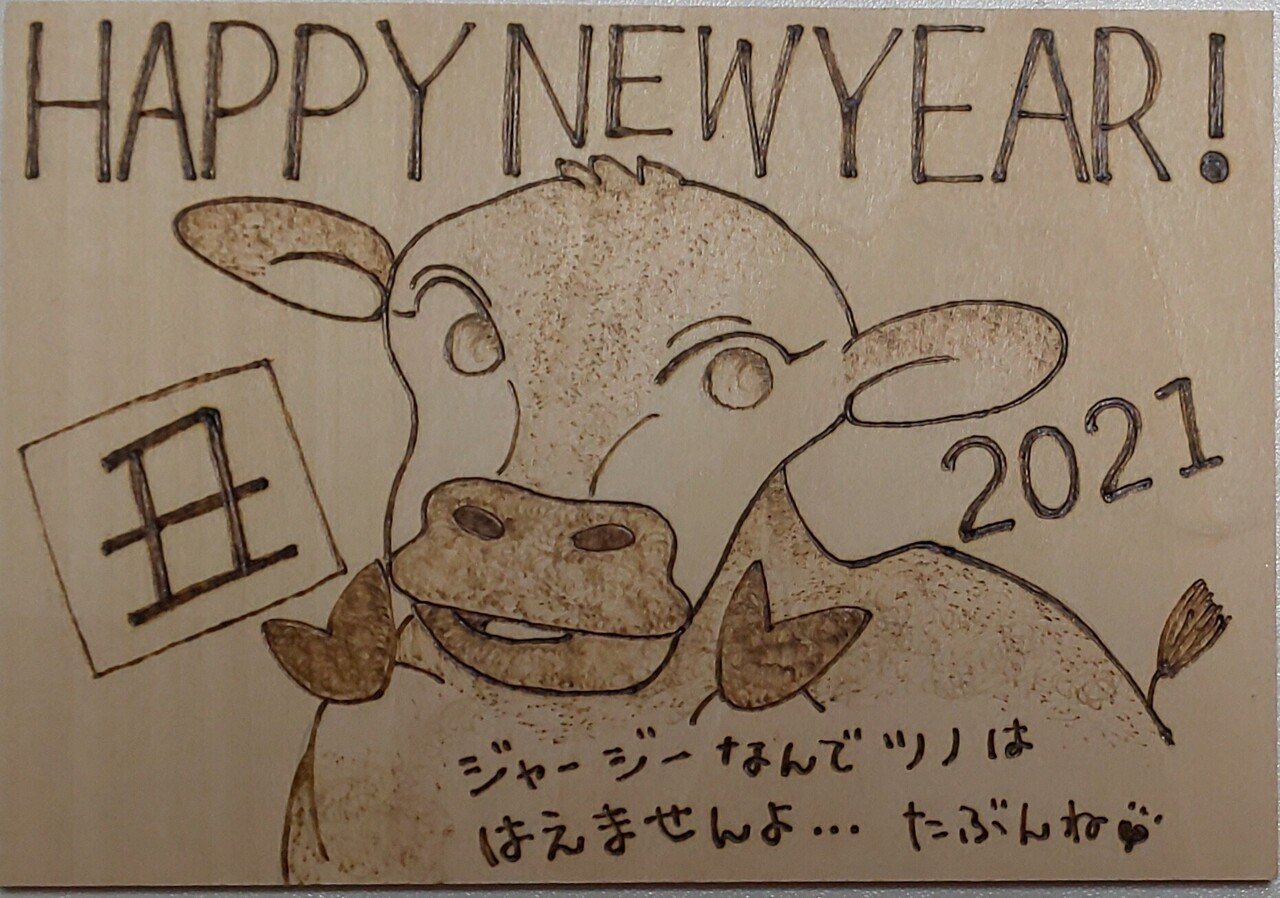 HAPPY NEW YEAR!
丑
2021
ジャージーなんでツノは
はえませんよ… たぶんね